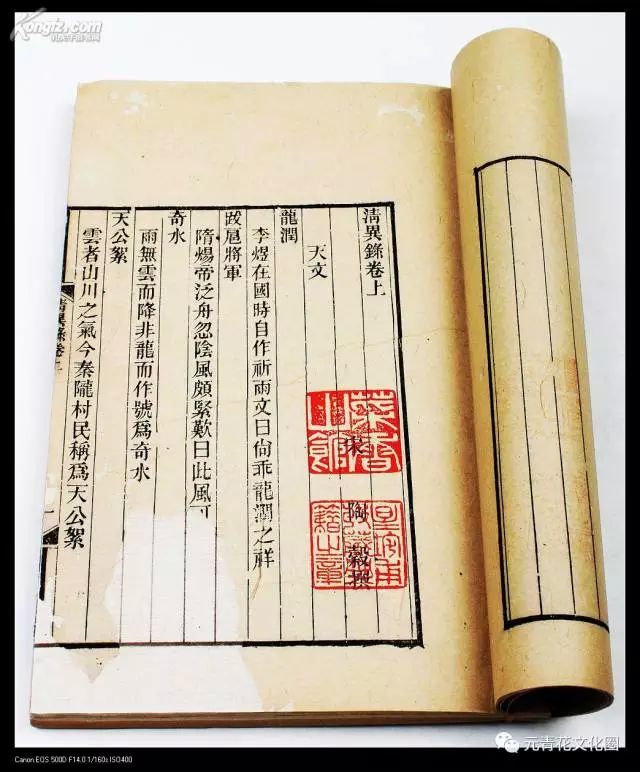 Kongfz.com
清異錄卷上
宋 陶穀撰
天文
龍潤
李煜在國時自作祈雨文曰尙乖龍潤之祥
跋扈將軍
隋煬帝泛舟忽陰風頗緊歎曰此風
奇水
雨無雲而降非龍而作號爲奇水
天公絮
雲者山川之氣今秦隴村民稱爲天公絮
清異錄卷上
元青花文化圈
Canon EOS 500D F14.0 1/160s ISO400